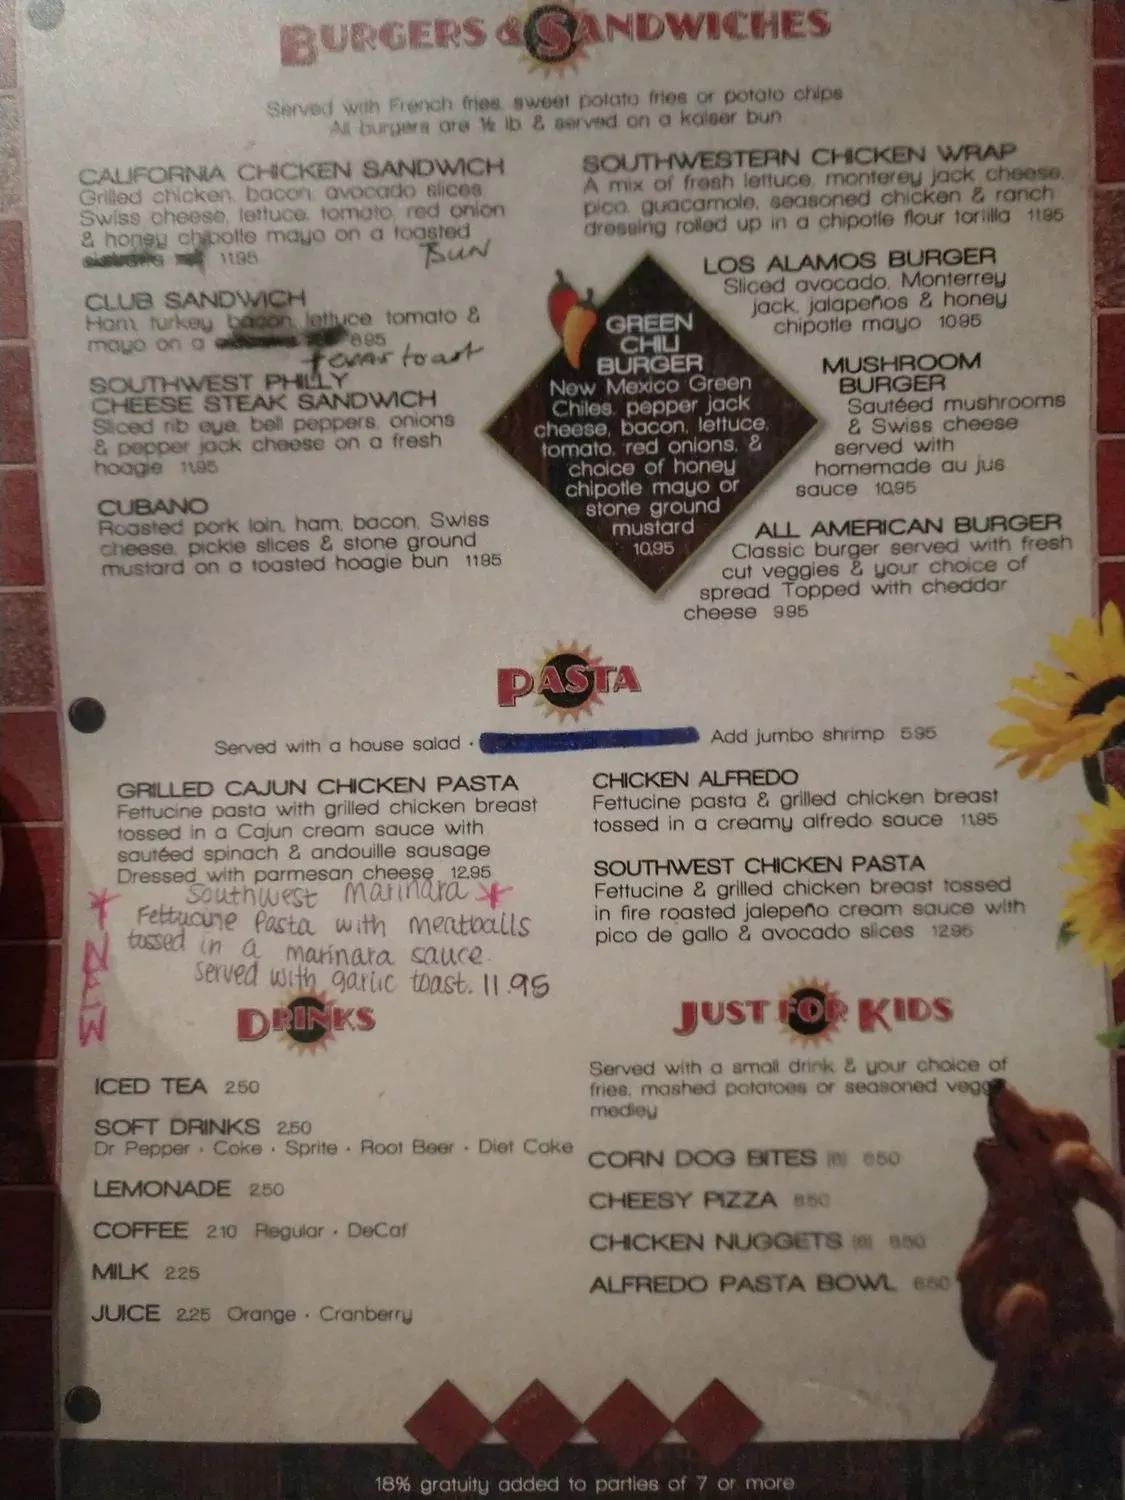 BURGERS & SANDWICHES
Served with French fries, sweet potato fries or potato chips
All burgers are ½ lb & served on a kaiser bun
CALIFORNIA CHICKEN SANDWICH
Grilled chicken, bacon, avocado slices
Swiss cheese, lettuce, tomato, red onion
& honey chipotle mayo on a toasted
11.95 Bun
CLUB SANDWICH
Ham, turkey, bacon, lettuce, tomato &
mayo on a 8.95
texas toast
SOUTHWEST PHILLY
CHEESE STEAK SANDWICH
Sliced rib eye, bell peppers, onions
& pepper jack cheese on a fresh
hoagie 11.95
CUBANO
Roasted pork loin, ham, bacon, Swiss
cheese, pickle slices & stone ground
mustard on a toasted hoagie bun 11.95
SOUTHWESTERN CHICKEN WRAP
A mix of fresh lettuce, monterey jack cheese,
pico, guacamole, seasoned chicken & ranch
dressing rolled up in a chipotle flour tortilla 11.95
LOS ALAMOS BURGER
Sliced avocado, Monterrey
jack, jalapeños & honey
chipotle mayo 10.95
GREEN
CHILI
BURGER
New Mexico Green
Chiles, pepper jack
cheese, bacon, lettuce,
tomato, red onions, &
choice of honey
chipotle mayo or
stone ground
mustard
10.95
MUSHROOM
BURGER
Sautéed mushrooms
& Swiss cheese
served with
homemade au jus
sauce 10.95
ALL AMERICAN BURGER
Classic burger served with fresh
cut veggies & your choice of
spread Topped with cheddar
cheese 9.95
PASTA
Served with a house salad · Add jumbo shrimp 5.95
GRILLED CAJUN CHICKEN PASTA
Fettucine pasta with grilled chicken breast
tossed in a Cajun cream sauce with
sautéed spinach & andouille sausage
Dressed with parmesan cheese 12.95
* Southwest Marinara *
Fettucine Pasta with meatballs
tossed in a marinara sauce.
served with garlic toast. 11.95
NEW
CHICKEN ALFREDO
Fettucine pasta & grilled chicken breast
tossed in a creamy alfredo sauce 11.95
SOUTHWEST CHICKEN PASTA
Fettucine & grilled chicken breast tossed
in fire roasted jalepeño cream sauce with
pico de gallo & avocado slices 12.95
DRINKS
ICED TEA 2.50
SOFT DRINKS 2.50
Dr Pepper · Coke · Sprite · Root Beer · Diet Coke
LEMONADE 2.50
COFFEE 2.10 Regular · DeCaf
MILK 2.25
JUICE 2.25 Orange · Cranberry
JUST FOR KIDS
Served with a small drink & your choice of
fries, mashed potatoes or seasoned veggie
medley
CORN DOG BITES (6) 6.50
CHEESY PIZZA 6.50
CHICKEN NUGGETS (6) 6.50
ALFREDO PASTA BOWL 6.50
18% gratuity added to parties of 7 or more